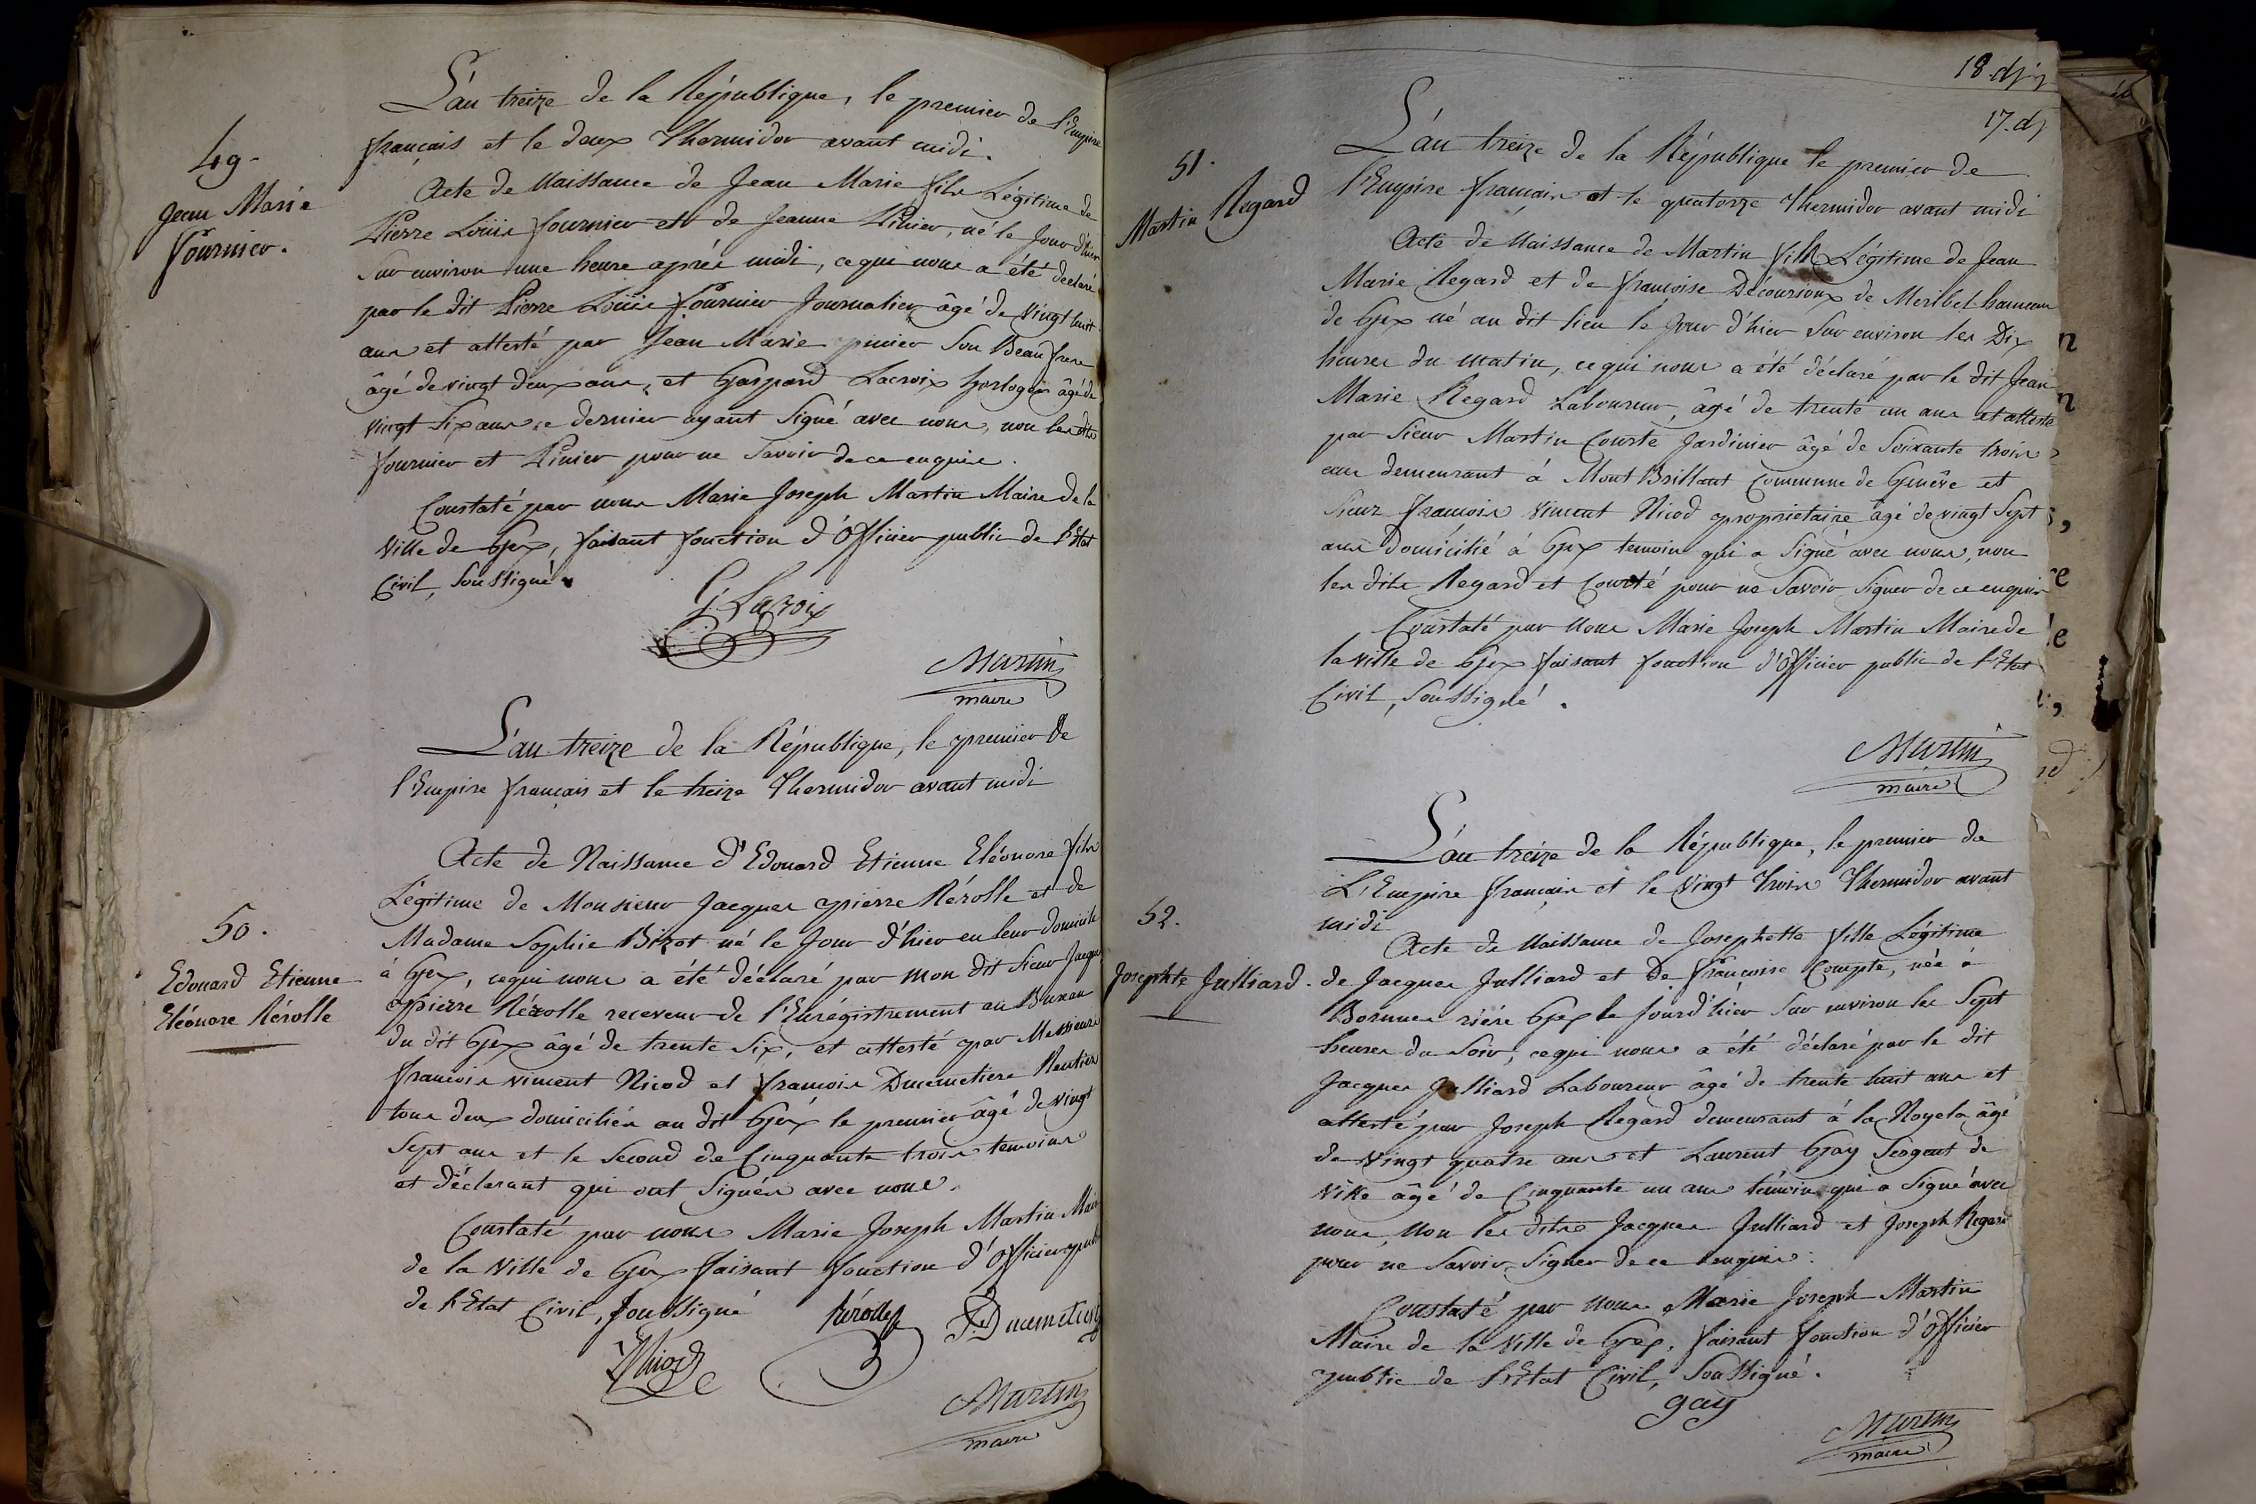 L'an treize de la République, le premier de l'Empire
français et le deux Thermidor avant midi.
49.
Jean Marie
fournier.
Acte de Naissance de Jean Marie fils Légitime de
Pierre Loüis fournier et de Jeanne Pinier, né le Jour d'hier
Sur environ une heure après midi, ce qui nous a été déclaré
par le dit Pierre Loüis fournier Journalier âgé de Vingt huit
ans et attesté par Jean Marie pinier Son Beau frere
âgé de vingt deux ans, et Gaspard Lacroix horloger âgé de
vingt Six ans ce dernier ayant Signé avec nous, non les dits
fournier et Pinier pour ne Savoir de ce enquis.
Constaté par nous Marie Joseph Martin Maire de la
Ville de Gex, faisant fonction d'Officier public de l'Etat
Civil, Soussigné.
G. Lacroix
Martin
maire
L'an treize de la République, le premier de
l'Empire français et le treize Thermidor avant midi
50.
Edouard Etienne
Eléonore Rérolle
Acte de Naissance d'Edouard Etienne Eléonore fils
Légitime de Monsieur Jacques pierre Rérolle et de
Madame Sophie Bizot né le Jour d'hier en leur domicile
à Gex, ce qui nous a été déclaré par mon dit Sieur Jacques
pierre Rérolle receveur de l'Enrégistrement au Bureau
du dit Gex âgé de trente Six, et attesté par Messieurs
francois vincent Nicod et francois Ducimetiere Rentiers
tous deux domiciliés au dit Gex le premier âgé de vingt
Sept ans et le Second de Cinquante trois temoins
et déclarant qui ont Signés avec nous.
Constaté par nous Marie Joseph Martin Maire
de la Ville de Gex faisant fonction d'Officier public
de l'Etat Civil, Soussigné
Rérolle
Nicod
Martin
maire
18.
17.
L'an treize de la République le premier de
l'Empire francais et le quatorze Thermidor avant midi
51.
Martin Regard
Acte de Naissance de Martin fils Légitime de Jean
Marie Regard et de francoise Décourioux de Meribel hameau
de Gex né au dit lieu le Jour d'hier Sur environ les Dix
heures du matin, ce qui nous a été déclaré par le dit Jean
Marie Regard Laboureur, âgé de trente un ans et attesté
par Sieur Martin Courté Jardinier âgé de Soixante trois
ans demeurant à Mont Brillant Commune de Genêve et
Sieur francois Vincent Nicod propriétaire âgé de vingt Sept
ans Domicilié à Gex temoin qui a Signé avec nous, non
les dits Regard et Courté pour ne Savoir Signer de ce enquis
Constaté par Nous Marie Joseph Martin Maire de
la Ville de Gex faisant fonction d'Officier public de l'Etat
Civil, Soussigné.
Martin
maire
L'an treize de la République, le premier de
L'Empire francais et le Vingt Trois Thermidor avant
midi
52.
Josephte Julliard.
Acte de Naissance de Josephette fille Légitime
de Jacques Julliard et De francoise Compte, née à
riére Gex le Jour d'hier Sur environ les Sept
heures du Soir, ce qui nous a été déclaré par le dit
Jacques Julliard Laboureur âgé de trente huit ans et
attesté par Joseph Regard demeurant à la âgé
de Vingt quatre ans et Laurent Gay Sergent de
Ville âgé de Cinquante un ans témoin qui a Signé avec
nous, Non les dits Jacques Julliard et Joseph Regard
pour ne Savoir Signer de ce enquis.
Constaté par Nous Marie Joseph Martin
Maire de la Ville de Gex, faisant fonction d'Officier
public de l'Etat Civil, Soussigné.
gay
Martin
maire